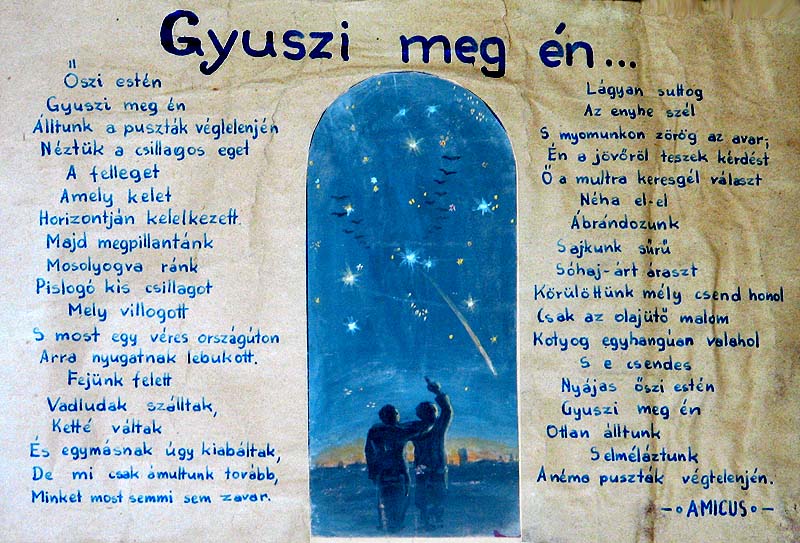 Gyuszi meg én...
Őszi estén
Gyuszi meg én
Álltunk a puszták véglelenjén
Néztük a csillagos eget
A felleget
Amely kelet
Horizontján kelelkezett.
Majd megpillantánk
Mosolyogva ránk
Pislogó kis csillagot
Mely villogott
S most egy véres országúton
Arra nyugatnak lebukott.
Fejünk felett
Vadludak szálltak,
Ketté váltak
És egymásnak úgy kiabáltak,
De mi csak ámultunk tovább,
Minket most semmi sem zavar.
Lágyan suttog
Az enyhe szél
S myomunkon zörög az avar;
Én a jövőről teszek kérdést
Ő a multra keresgél választ
Néha el-el
Ábrándozunk
Sajkunk sűrű
Sóhaj-árt áraszt
Körülöttünk mély csend honol
Csak az olajütő malom
Kotyog egyhangúan valahol
S e csendes
Nyájas őszi estén
Gyuszi meg én
Ottan álltunk
Selméláztunk
Anéma puszták végtelenjén.
-o AMICUS o-